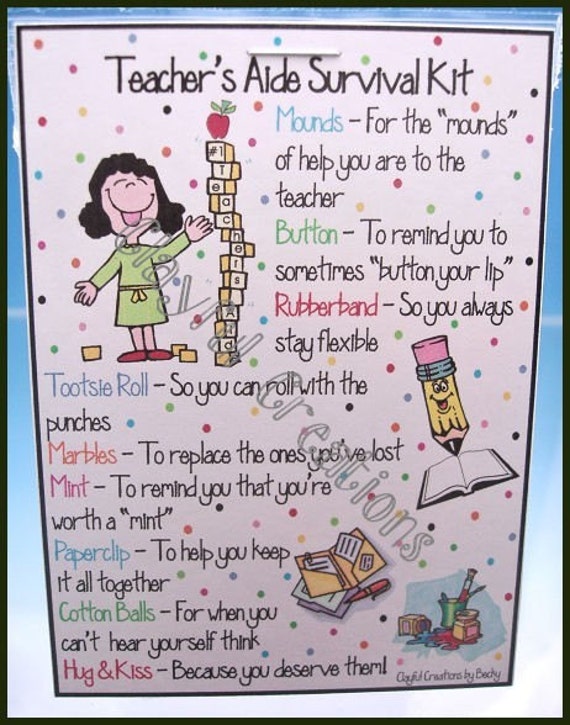 Teacher's Aide Survival Kit
#1
Teachers
Aide
Mounds – For the "mounds"
of help you are to the
teacher
Button – To remind you to
sometimes "button your lip"
Rubberband – So you always
stay flexible
Tootsie Roll – So you can roll with the
punches
Marbles – To replace the ones you've lost
Mint – To remind you that you're
worth a "mint"
Paperclip – To help you keep
it all together
Cotton Balls – For when you
can't hear yourself think
Hug & Kiss – Because you deserve them!
Clayful Creations by Becky
Clayful Creations